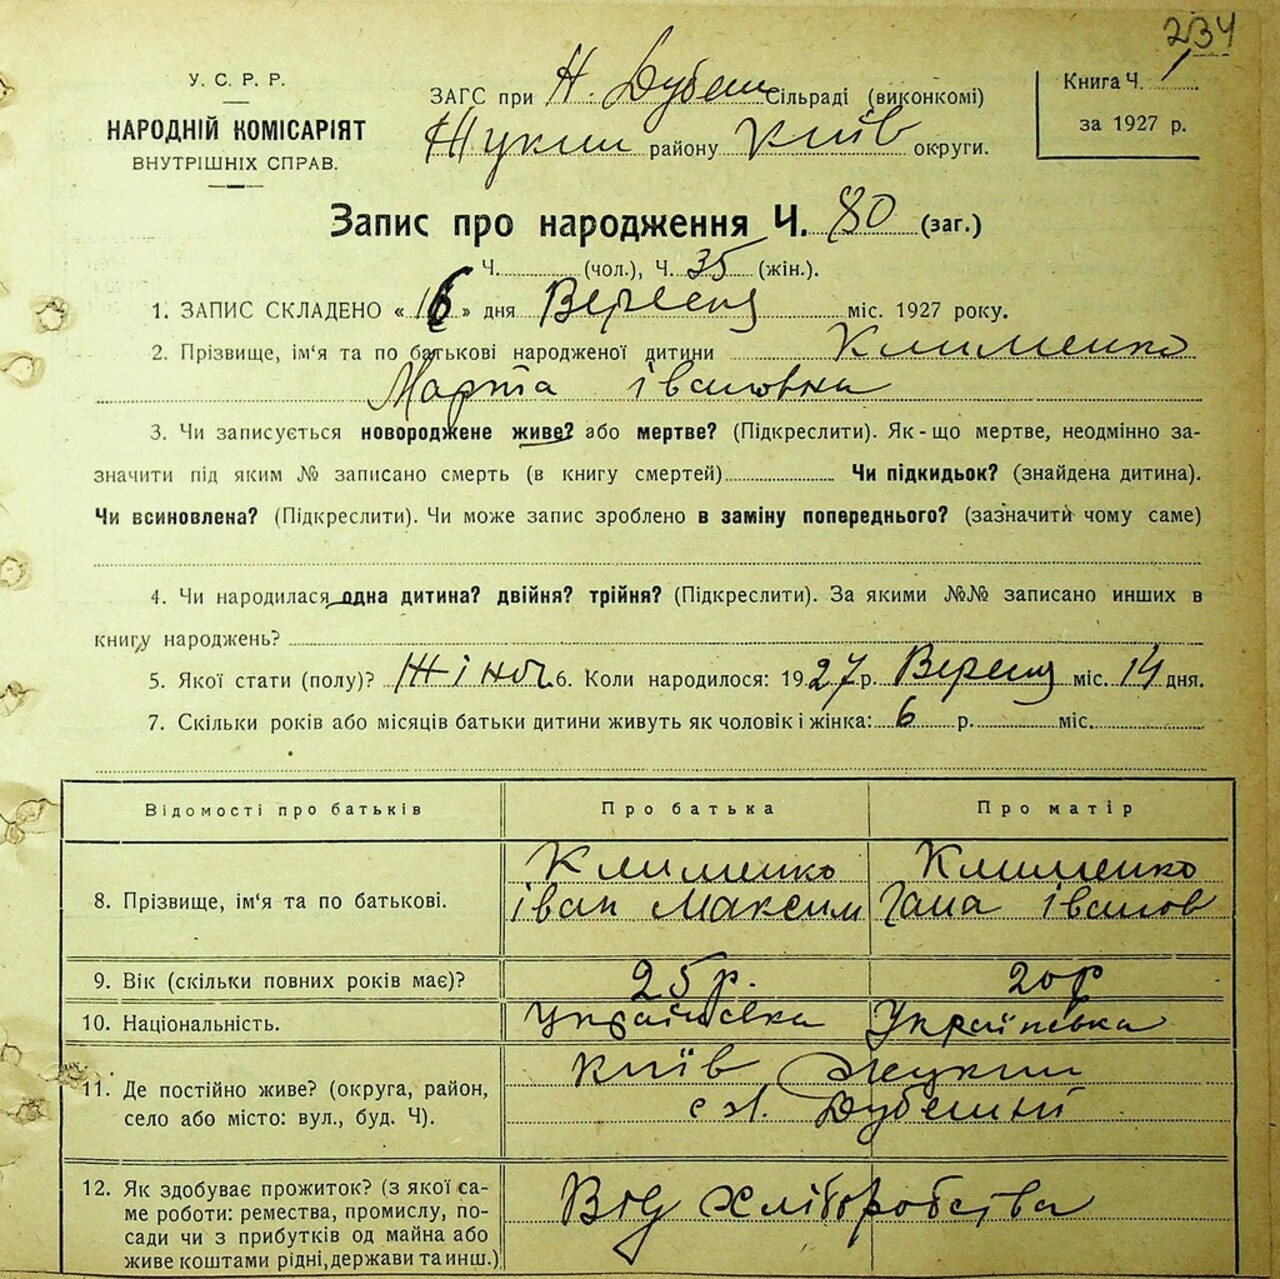 234
У. С. Р. Р.
НАРОДНІЙ КОМІСАРІЯТ
ВНУТРІШНІХ СПРАВ.
ЗАГС при Н. Дубеш Сільраді (виконкомі)
Жукин району Київ округи.
Книга Ч. 1
за 1927 р.
Запис про народження Ч. 80 (заг.)
Ч. (чол.), Ч. 35 (жін.).
1. ЗАПИС СКЛАДЕНО « 16 » дня Вересня міс. 1927 року.
2. Прізвище, ім'я та по батькові народженої дитини Клименко
Марта івановна
3. Чи записується новороджене живе? або мертве? (Підкреслити). Як-що мертве, неодмінно за-
значити під яким № записано смерть (в книгу смертей) Чи підкидьок? (знайдена дитина).
Чи всиновлена? (Підкреслити). Чи може запис зроблено в заміну попереднього? (зазначити чому саме)
4. Чи народилася одна дитина? двійня? трійня? (Підкреслити). За якими №№ записано инших в
книгу народжень?
5. Якої стати (полу)? Жіноч 6. Коли народилося: 1927 р. Вересня міс. 14 дня.
7. Скільки років або місяців батьки дитини живуть як чоловік і жінка: 6 р. міс.
Відомості про батьків Про батька Про матір
8. Прізвище, ім'я та по батькові. Клименко Клименко
іван Максим Гана іванов
9. Вік (скільки повних років має)? 25 р. 20 р
10. Національність. Українська Українська
11. Де постійно живе? (округа, район,
село або місто: вул., буд. Ч). Київ Жукин
с Н. Дубешні
12. Як здобуває прожиток? (з якої са-
ме роботи: ремества, промислу, по-
сади чи з прибутків од майна або
живе коштами рідні, держави та инш.) Від хліборобства